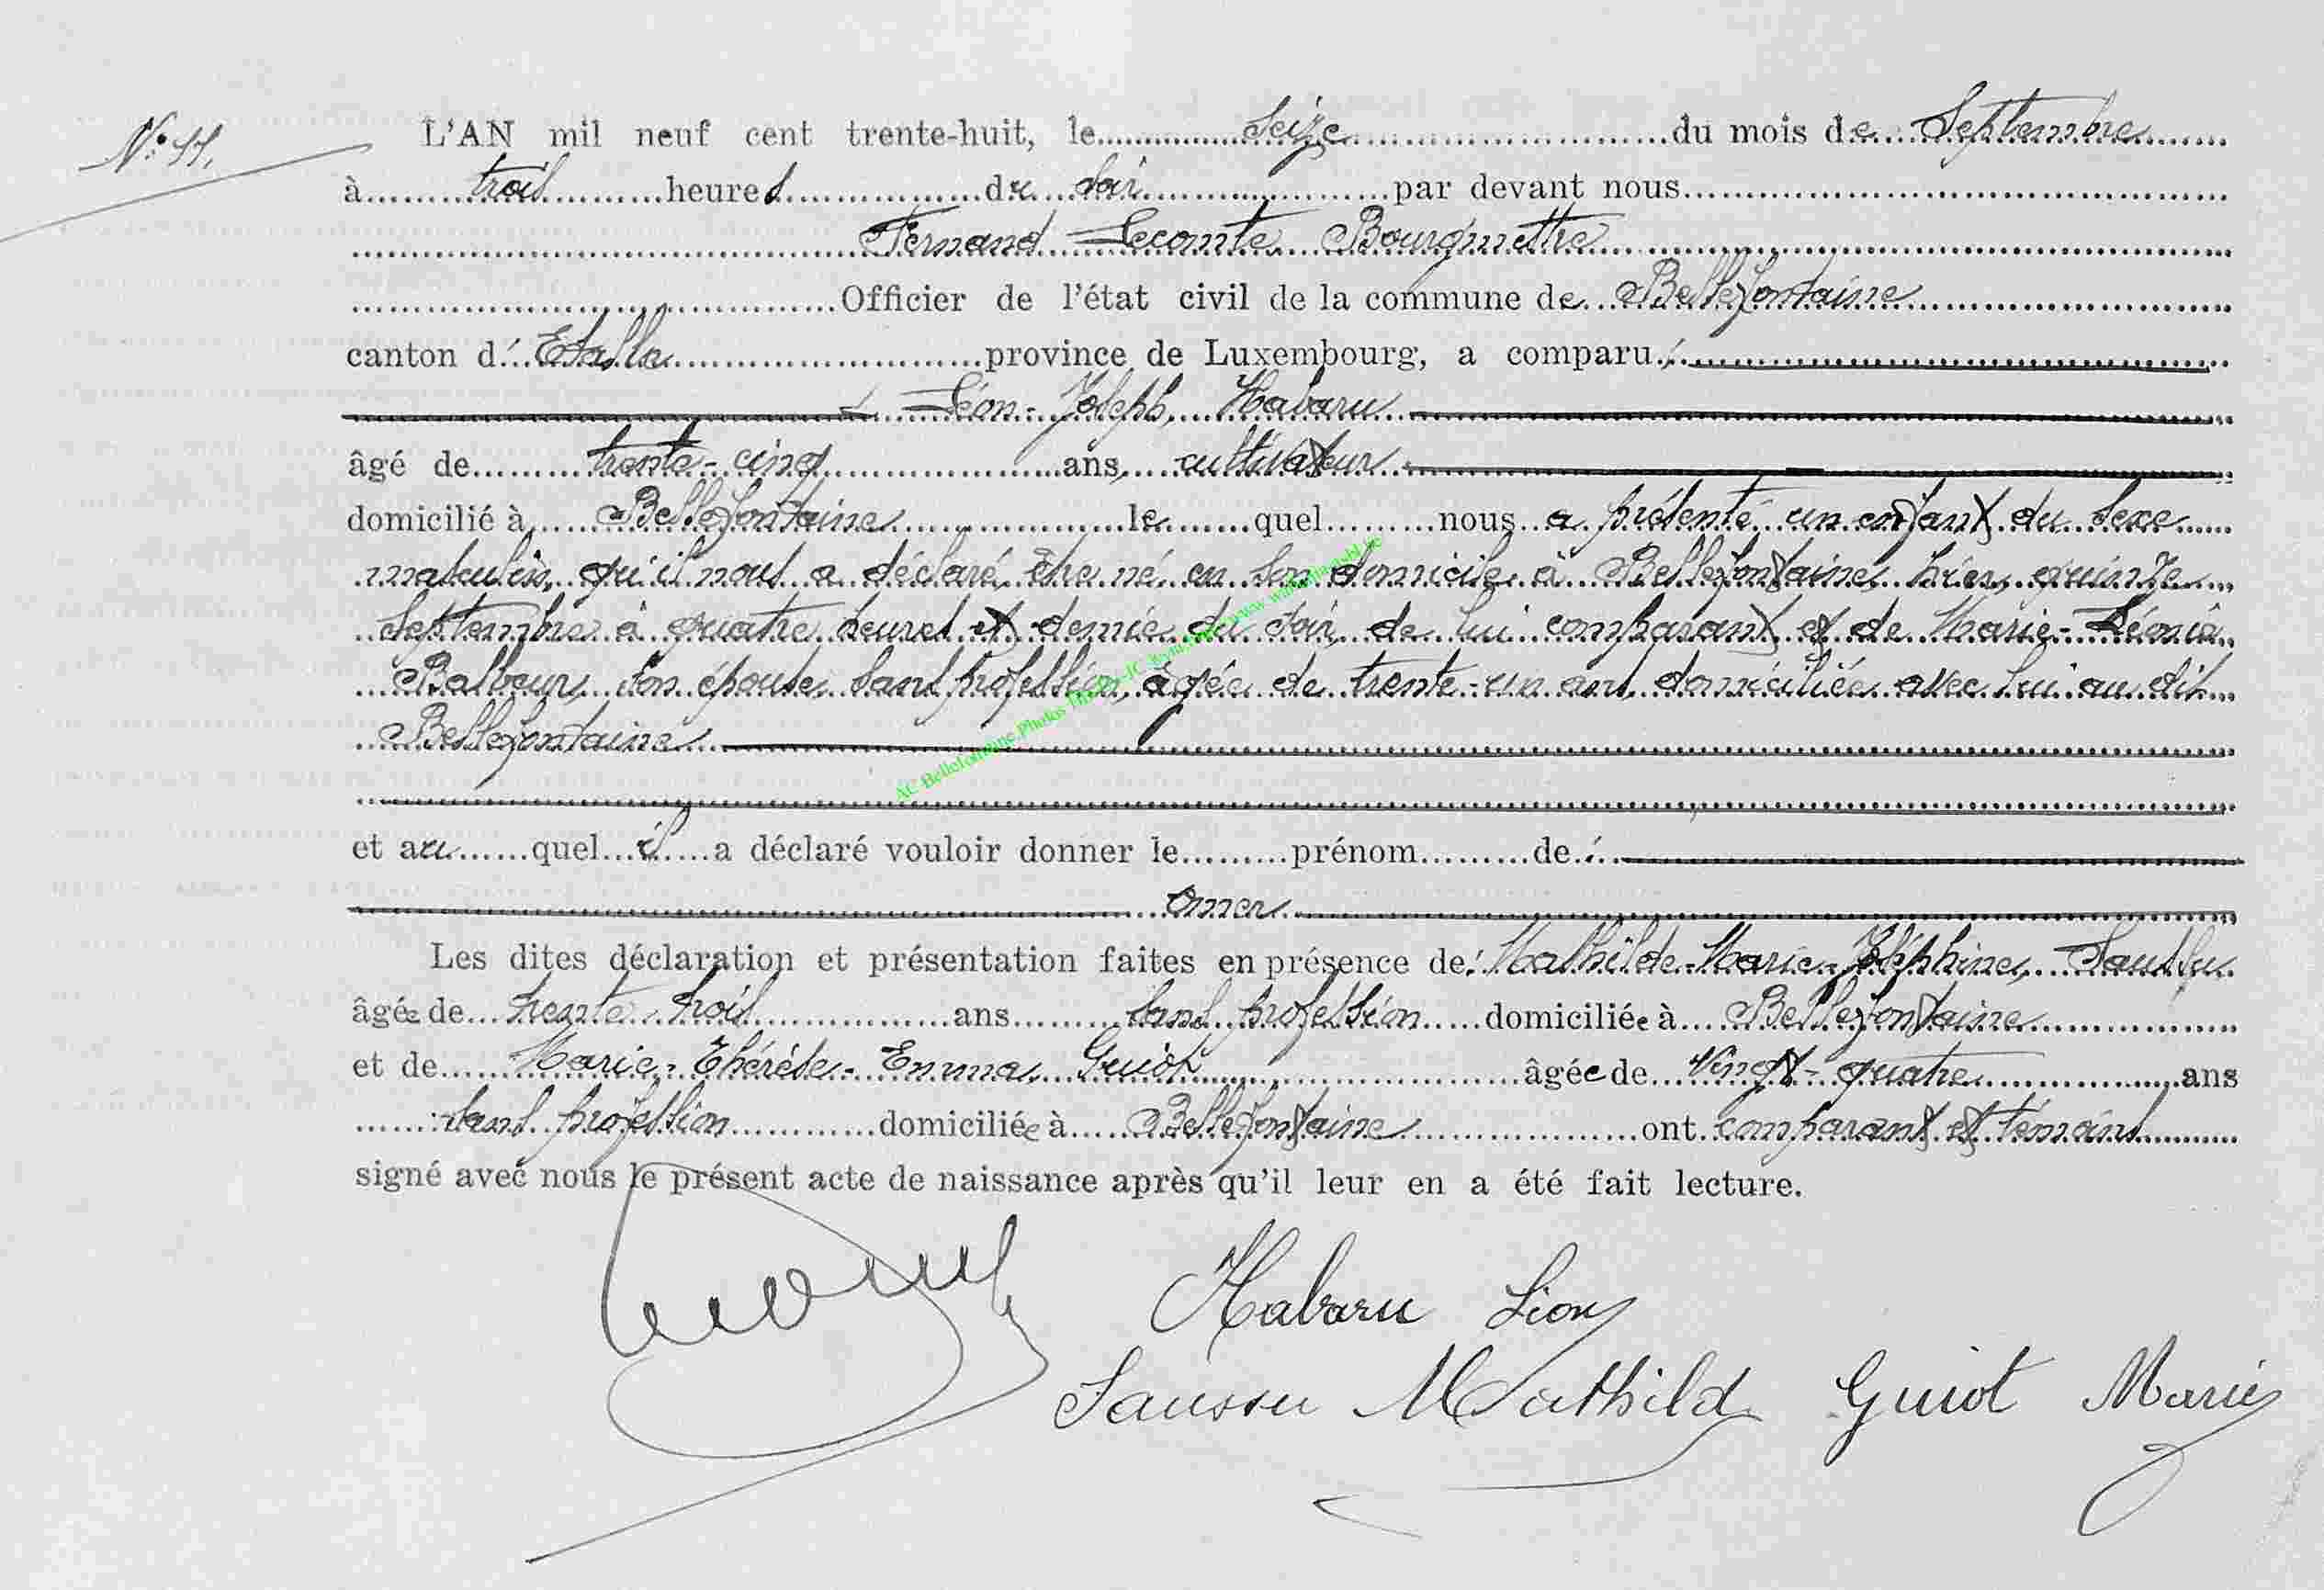 N° 11.
L'AN mil neuf cent trente-huit, le seize du mois de Septembre
à trois heures du soir par devant nous
Fernand Lecomte Bourgmestre
Officier de l'état civil de la commune de Bellefontaine
canton d'Etalle province de Luxembourg, a comparu :
Léon-Joseph Habaru
âgé de trente-cinq ans, cultivateur
domicilié à Bellefontaine lequel nous a présenté un enfant du sexe
masculin, qu'il nous a déclaré être né en son domicile à Bellefontaine, hier, quinze
Septembre à quatre heures et demie du soir, de lui comparant et de Marie-Léonie
Balbeur, son épouse, sans profession, âgée de trente-un ans, domiciliée avec lui au dit
Bellefontaine
et auquel il a déclaré vouloir donner le prénom de :
Omer
Les dites déclaration et présentation faites en présence de : Mathilde-Marie-Joséphine, Saussu
âgée de trente trois ans sans profession domiciliée à Bellefontaine
et de Marie-Thérèse-Emma Guiot âgée de vingt-quatre ans
sans profession domiciliée à Bellefontaine ont comparant et témoins
signé avec nous le présent acte de naissance après qu'il leur en a été fait lecture.
Habaru Léon
Saussu Mathild Guiot Marie
AC Bellefontaine Photos